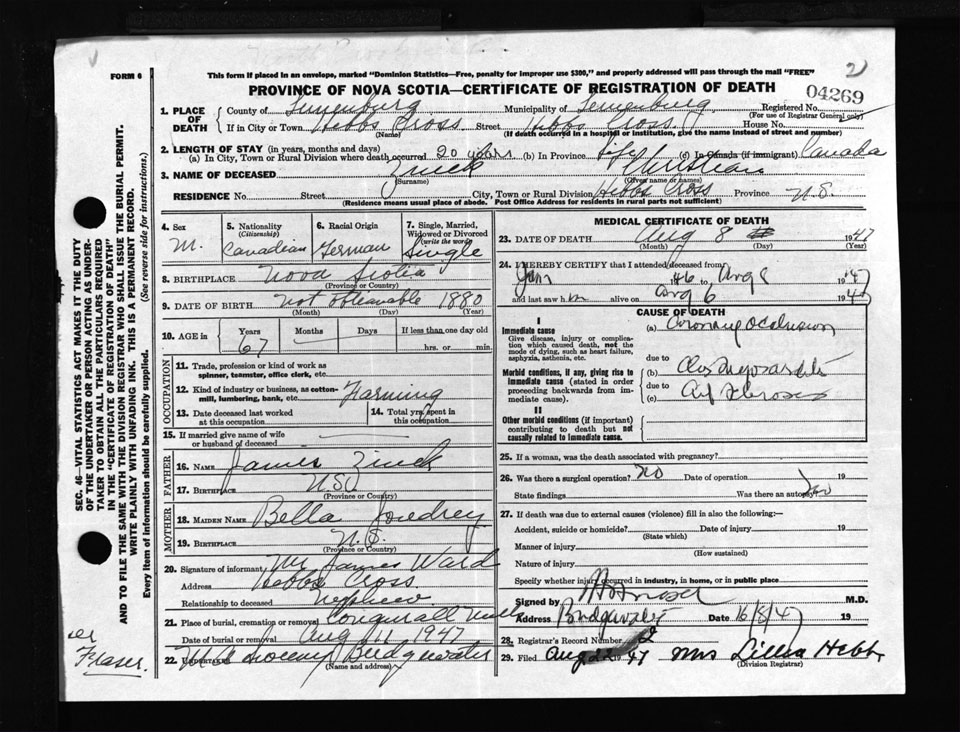 FORM 6
This form if placed in an envelope, marked "Dominion Statistics—Free, penalty for improper use $300," and properly addressed will pass through the mail "FREE"
2
PROVINCE OF NOVA SCOTIA—CERTIFICATE OF REGISTRATION OF DEATH
04269
1. PLACE OF DEATH
County of Lunenburg Municipality of Lunenburg Registered No.
(For use of Registrar General only)
If in City or Town Hebbs Cross Street Hebbs Cross House No.
(Name) (If death occurred in a hospital or institution, give the name instead of street and number)
2. LENGTH OF STAY (in years, months and days)
(a) In City, Town or Rural Division where death occurred 20 years (b) In Province Life (c) In Canada (if immigrant) Canada
3. NAME OF DECEASED Zinck
(Surname) (Given name or names)
RESIDENCE No. Street City, Town or Rural Division Hebbs Cross Province N.S.
(Residence means usual place of abode. Post Office Address for residents in rural parts not sufficient)
4. Sex M.
5. Nationality (Citizenship) Canadian
6. Racial Origin German
7. Single, Married, Widowed or Divorced (write the word) Single
8. BIRTHPLACE Nova Scotia
(Province or Country)
9. DATE OF BIRTH Not obtainable 1880
(Month) (Day) (Year)
10. AGE in Years Months Days If less than one day old
67 hrs. or min.
OCCUPATION
11. Trade, profession or kind of work as spinner, teamster, office clerk, etc.
12. Kind of industry or business, as cotton-mill, lumbering, bank, etc. Farming
13. Date deceased last worked at this occupation
14. Total yrs. spent in this occupation
15. If married give name of wife or husband of deceased
FATHER
16. NAME James Zinck
17. BIRTHPLACE
(Province or Country)
MOTHER
18. MAIDEN NAME Bella Joudrey
19. BIRTHPLACE N.S.
(Province or Country)
20. Signature of informant Mr James Ward
Address Hebbs Cross
Relationship to deceased Nephew
21. Place of burial, cremation or removal Conquerall Mills
Date of burial or removal Aug 11 1947
22. Bridgewater
(Name and address)
MEDICAL CERTIFICATE OF DEATH
23. DATE OF DEATH Aug 8 1947
(Month) (Day) (Year)
24. I HEREBY CERTIFY that I attended deceased from
Jan 1946 to Aug 8 1947
and last saw him alive on Aug 6 1947
CAUSE OF DEATH
I
Immediate cause
Give disease, injury or complication which caused death, not the mode of dying, such as heart failure, asphyxia, asthenia, etc.
(a) Coronary Occlusion
due to
Morbid conditions, if any, giving rise to immediate cause (stated in order proceeding backwards from immediate cause).
(b)
due to
(c)
II
Other morbid conditions (if important) contributing to death but not causally related to immediate cause.
25. If a woman, was the death associated with pregnancy?
26. Was there a surgical operation? No Date of operation 19
State findings Was there an autopsy? No
27. If death was due to external causes (violence) fill in also the following:
Accident, suicide or homicide? Date of injury 19
(State which)
Manner of injury
(How sustained)
Nature of injury
Specify whether injury occurred in industry, in home, or in public place
Signed by M.D.
Address Bridgewater Date 16/8/47 19
28. Registrar's Record Number 2
29. Filed Aug 22 1947 Mrs Lillia Hebb
(Division Registrar)
SEC. 46—VITAL STATISTICS ACT MAKES IT THE DUTY
OF THE UNDERTAKER OR PERSON ACTING AS UNDERTAKER TO OBTAIN ALL THE PARTICULARS REQUIRED
IN THE "CERTIFICATE OF REGISTRATION OF DEATH"
AND TO FILE THE SAME WITH THE DIVISION REGISTRAR WHO SHALL ISSUE THE BURIAL PERMIT.
WRITE PLAINLY WITH UNFADING INK. THIS IS A PERMANENT RECORD.
Every item of information should be carefully supplied. (See reverse side for instructions.)
Fraser.